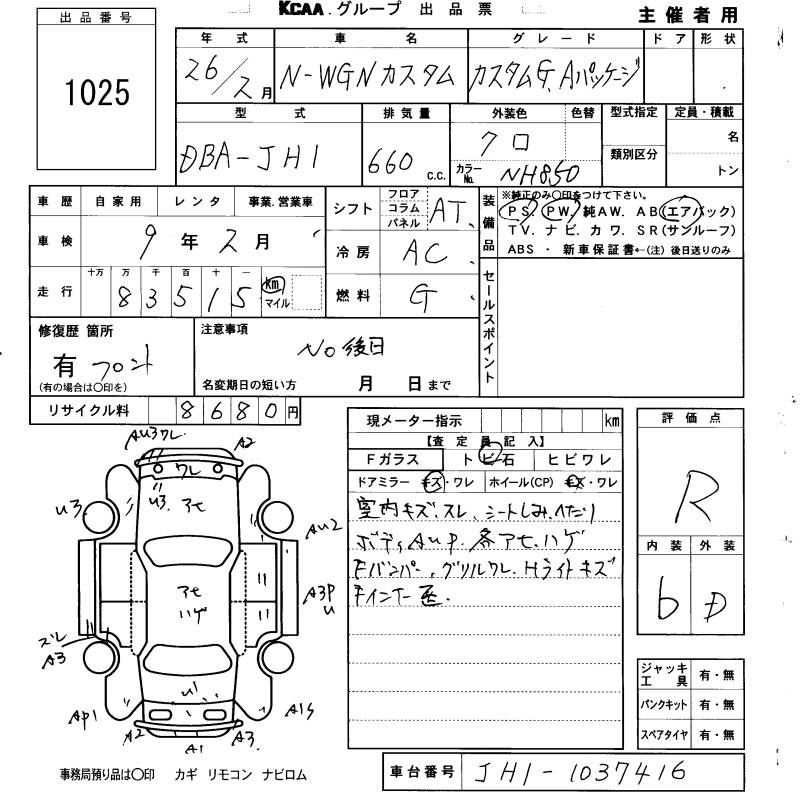 KCAA.グループ 出品票
主催者用
出品番号
1025
年式 車名 グレード ドア 形状
26/2月 N-WGNカスタム カスタムG.Aパッケージ
型式 排気量 外装色 色替 型式指定 定員・積載
DBA-JH1 660 c.c. クロ 類別区分 名
カラーNo. NH850 トン
車歴 自家用 レンタ 事業.営業車
車検 9年2月
走行 十万 万 千 百 十 一
83515 km マイル
シフト フロア コラム パネル AT
冷房 AC
燃料 G
装備品 ※純正のみ○印をつけて下さい。
PS. PW. 純AW. AB(エアバック)
TV. ナビ. カワ. SR(サンルーフ)
ABS ・ 新車保証書←(注) 後日送りのみ
セールスポイント
修復歴 箇所
有 フロント
(有の場合は○印を)
注意事項
No後日
名変期日の短い方 月 日まで
リサイクル料 8680円
現メーター指示 km
【査定員記入】
Fガラス トビ石 ヒビワレ
ドアミラー キズ・ワレ ホイール(CP) キズ・ワレ
室内キズ、スレ、シートしみ、へたり
ボディAUP.各アセ.ハゲ
Fバンパー、グリルワレ.Hライトキズ
評価点
R
内装 外装
b D
ジャッキ 工具 有・無
パンクキット 有・無
スペアタイヤ 有・無
AU3ワレ
A2
ワレ
U3. アセ
U3
AU2
アセ
ハゲ
A3P
U
スレ
A3
U1
AP1
A1S
A2
A1
A3.
事務局預り品は○印 カギ リモコン ナビロム
車台番号 JH1-1037416